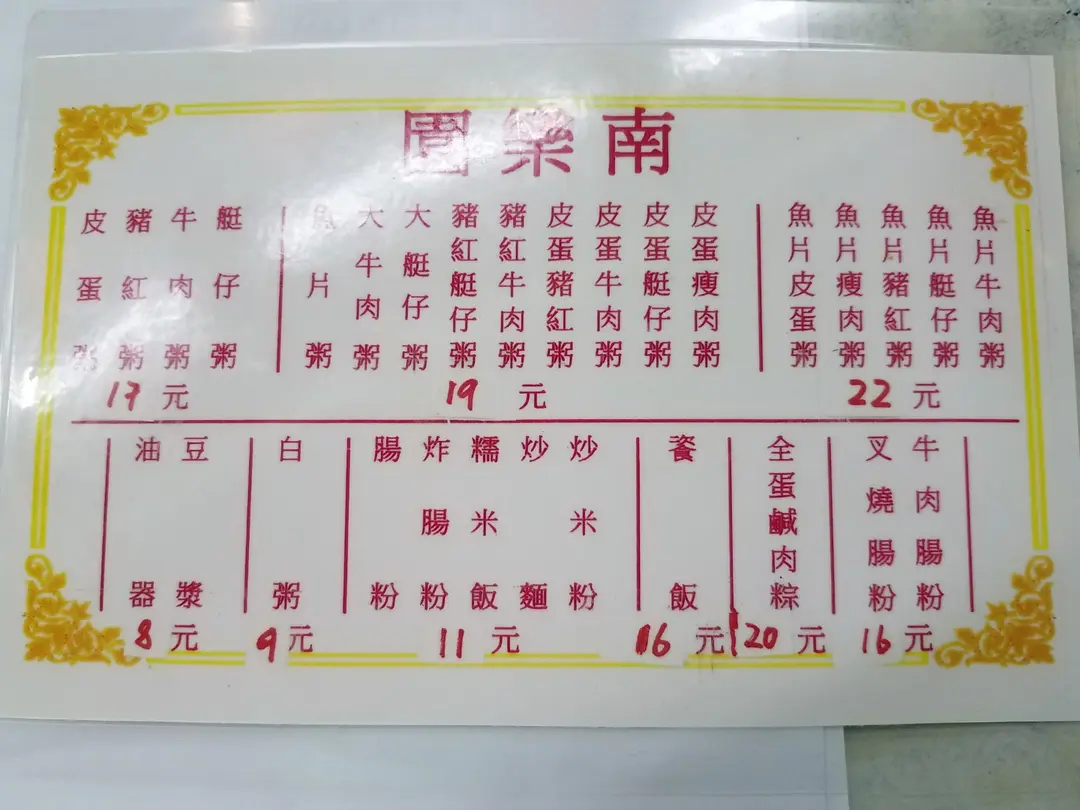 南樂園
魚片牛肉粥
魚片艇仔粥
魚片豬紅粥
魚片瘦肉粥
魚片皮蛋粥
22元
皮蛋瘦肉粥
皮蛋艇仔粥
皮蛋牛肉粥
皮蛋豬紅粥
豬紅牛肉粥
豬紅艇仔粥
大艇仔粥
大牛肉粥
魚片粥
19元
艇仔粥
牛肉粥
豬紅粥
皮蛋粥
17元
牛肉腸粉
叉燒腸粉
16元
全蛋鹹肉粽
20元
餈飯
16元
炒米粉
炒麵
糯米飯
炸腸粉
腸粉
11元
白粥
9元
豆漿
油器
8元